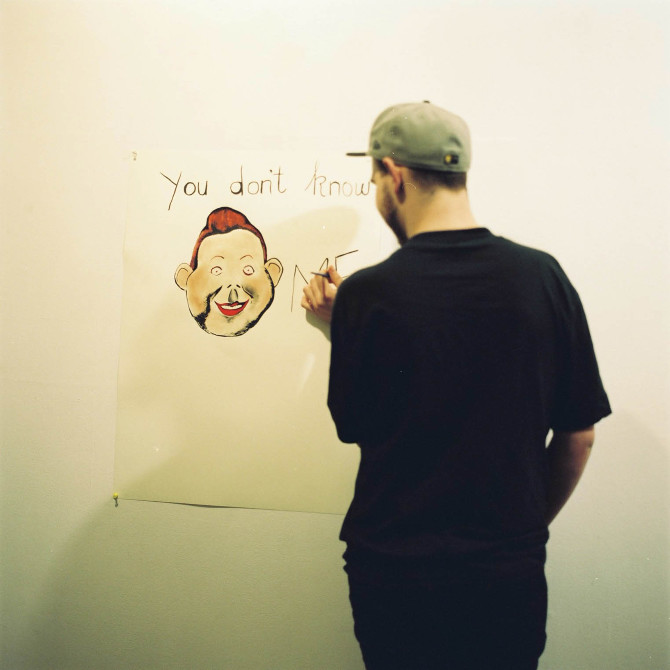 You don't know
ME